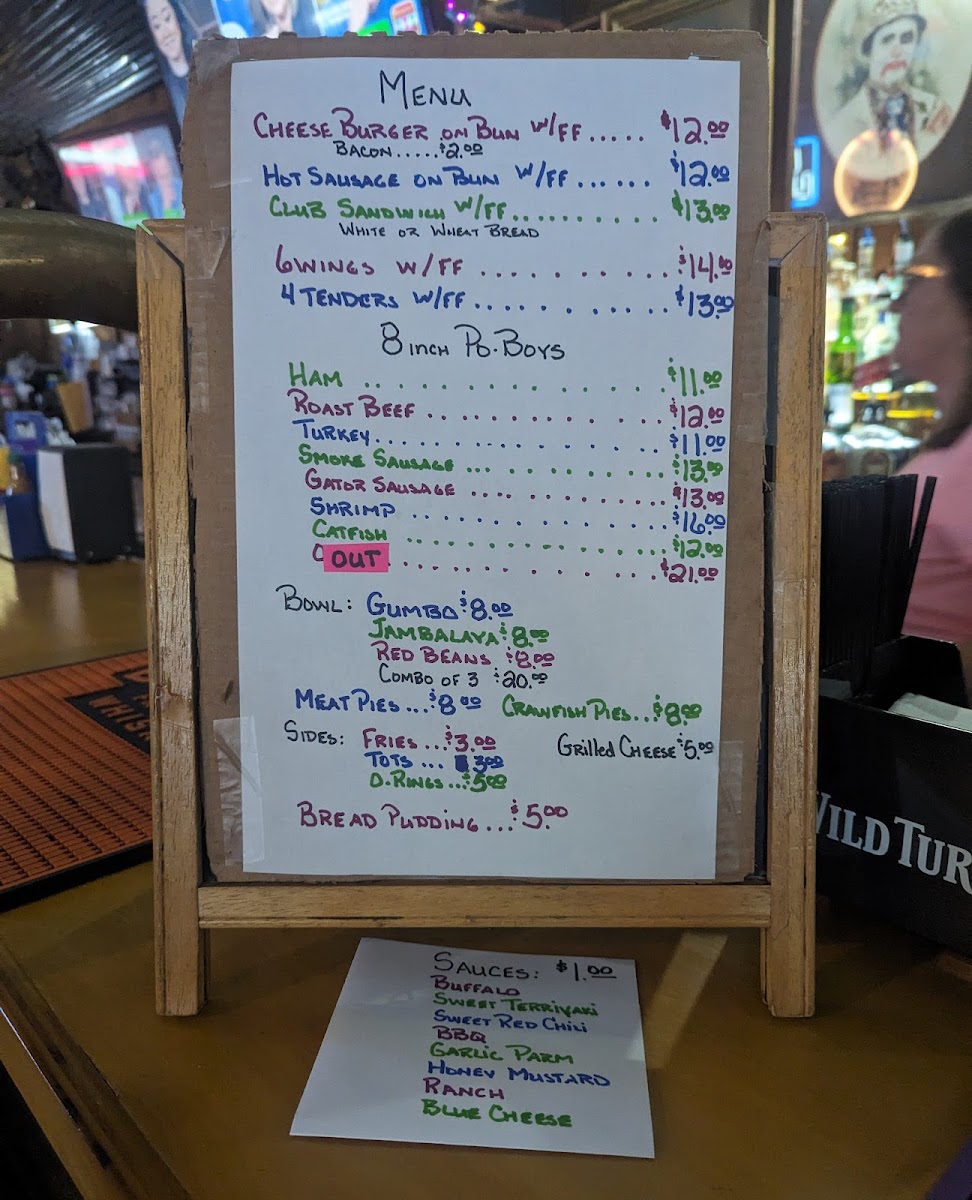 MENU
CHEESE BURGER ON BUN W/FF ..... $12.00
BACON ..... $2.00
HOT SAUSAGE ON BUN W/FF ...... $12.00
CLUB SANDWICH W/FF .......... $13.00
WHITE OR WHEAT BREAD
6 WINGS W/FF .......... $14.00
4 TENDERS W/FF .......... $13.00
8 INCH PO-BOYS
HAM .............. $11.00
ROAST BEEF ............ $12.00
TURKEY ............. $11.00
SMOKE SAUSAGE ............ $13.00
GATOR SAUSAGE ............ $13.00
SHRIMP ............ $16.00
CATFISH ............ $12.00
OUT ............ $21.00
BOWL: GUMBO $8.00
JAMBALAYA $8.00
RED BEANS $8.00
COMBO OF 3 $20.00
MEAT PIES ... $8.00 CRAWFISH PIES... $8.00
SIDES: FRIES ... $3.00 Grilled Cheese $5.00
TOTS ... 3.00
O.RINGS ... $5.00
BREAD PUDDING ... $5.00
SAUCES: $1.00
BUFFALO
SWEET TERRIYAKI
SWEET RED CHILI
BBQ
GARLIC PARM
HONEY MUSTARD
RANCH
BLUE CHEESE
WILD TUR
WHIS